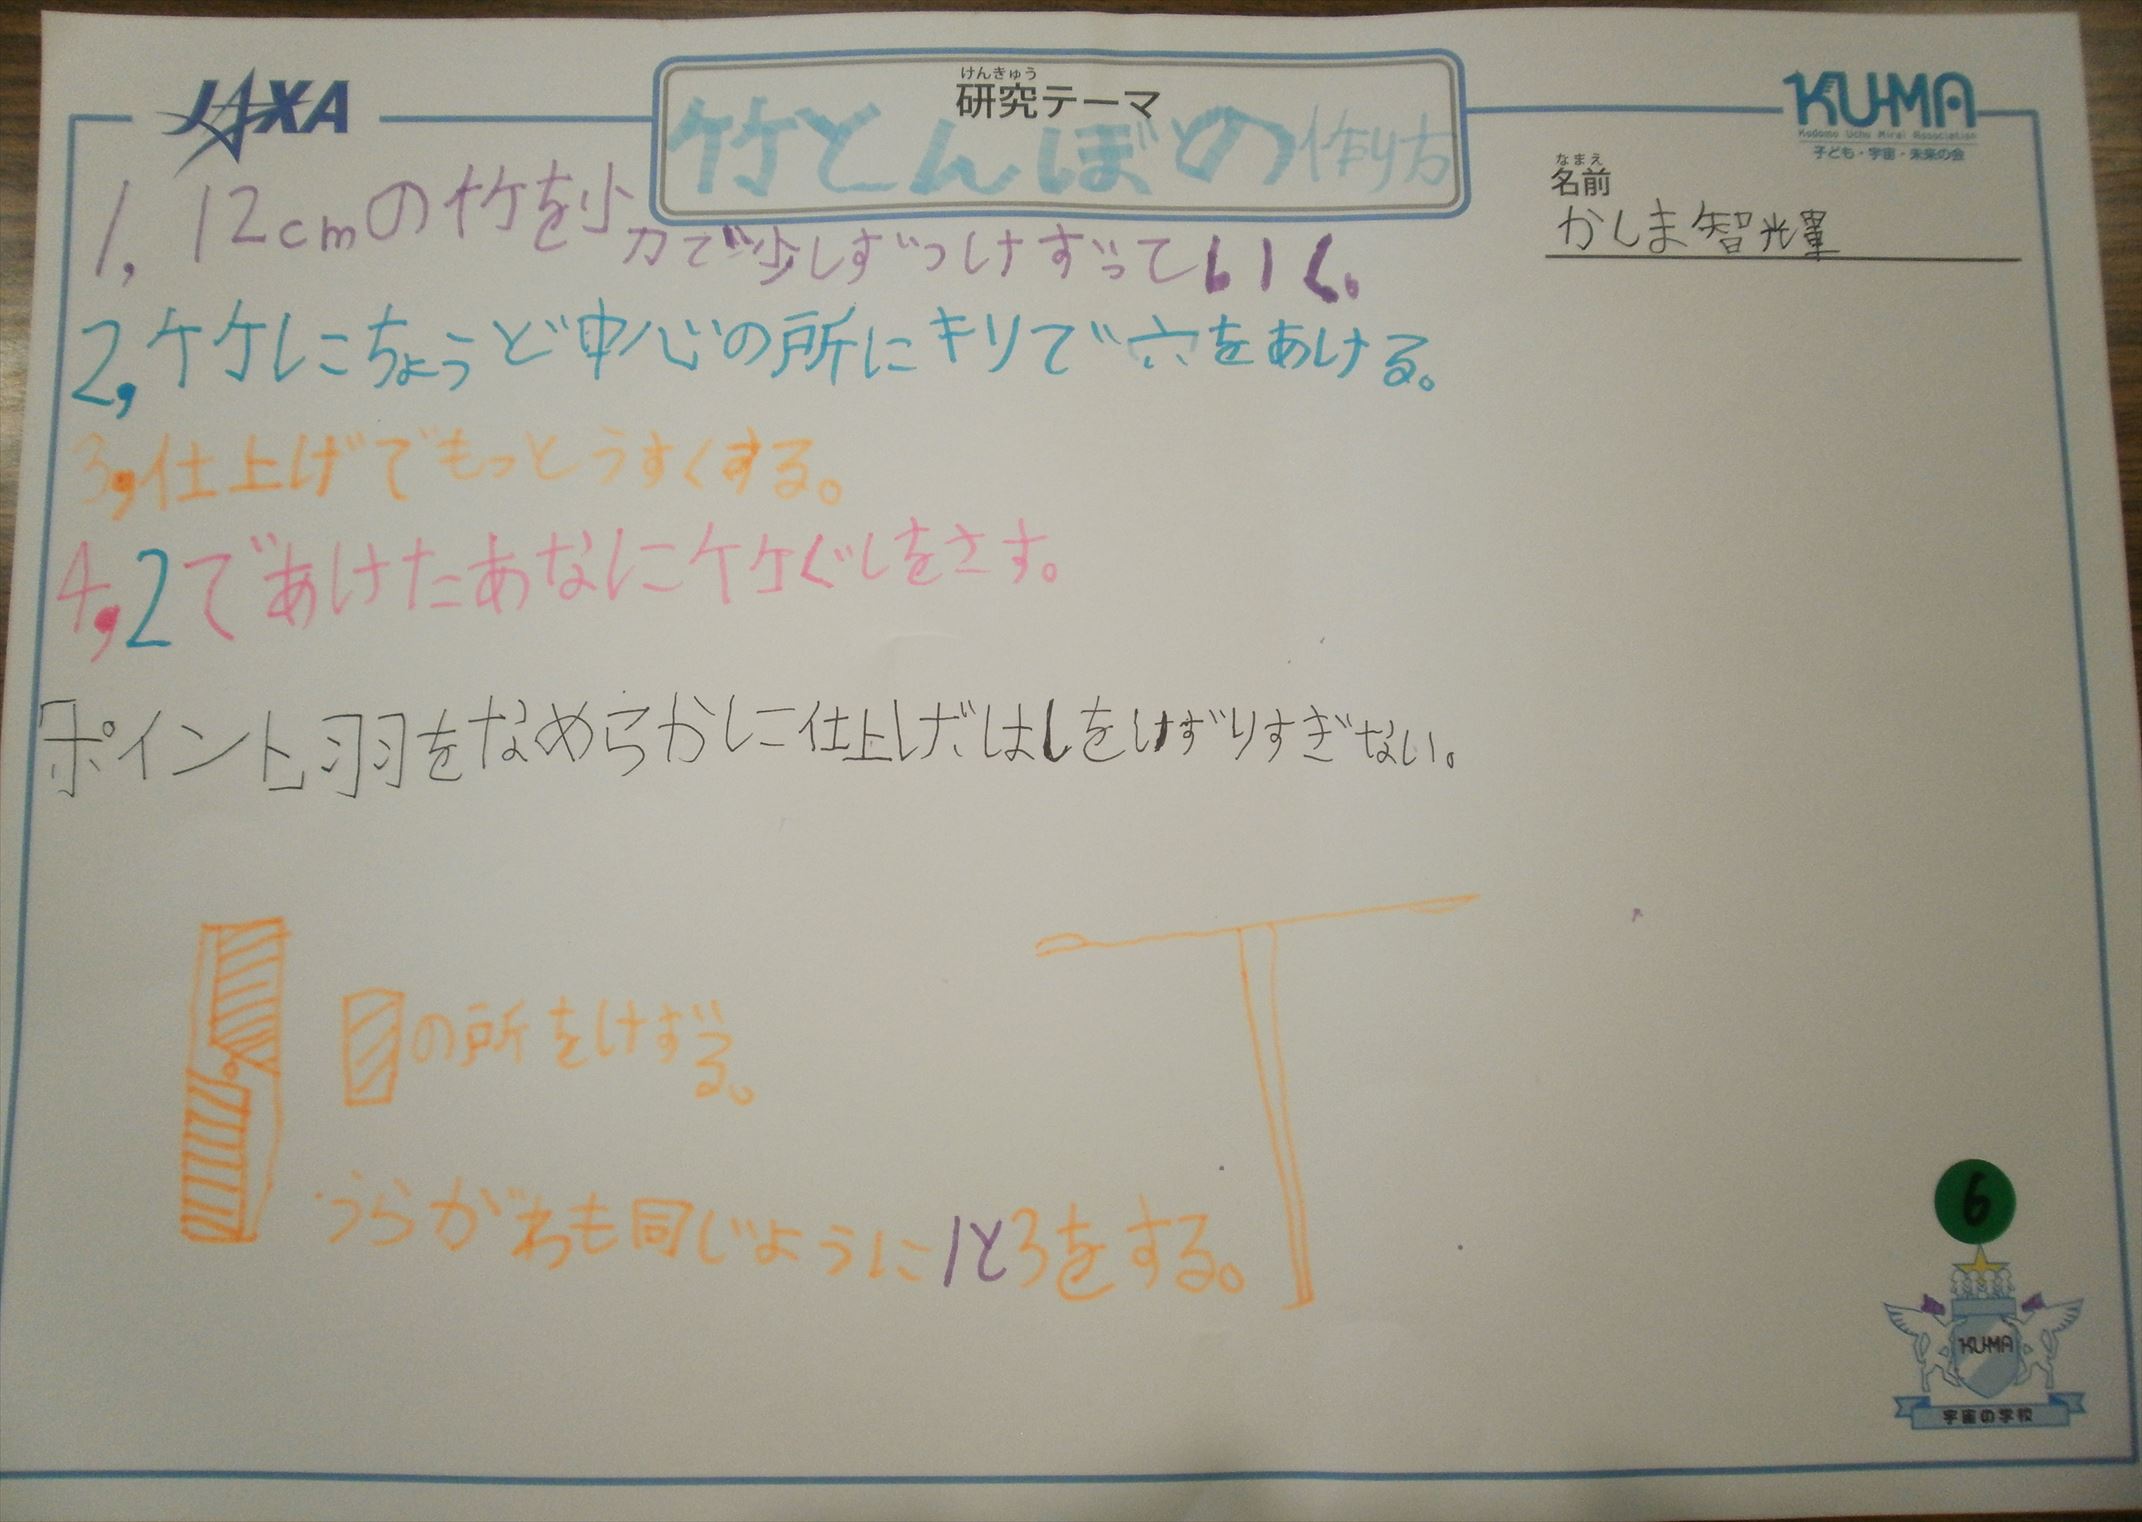 JAXA
けんきゅう
研究テーマ
竹とんぼの作り方
KU-MA
Kodomo Uchu Mirai Association
子ども・宇宙・未来の会
なまえ
名前
かしま智輝
1, 12cmの竹を小刀で少しずつけずっていく。
2, 竹にちょうど中心の所にキリで穴をあける。
3, 仕上げでもっとうすくする。
4, 2であけたあなに竹ぐしをさす。
「ポイント」羽をなめらかに仕上げ、はしをけずりすぎない。
の所をけずる。
うらがわも同じように1と3をする。
6
KU-MA
宇宙の学校